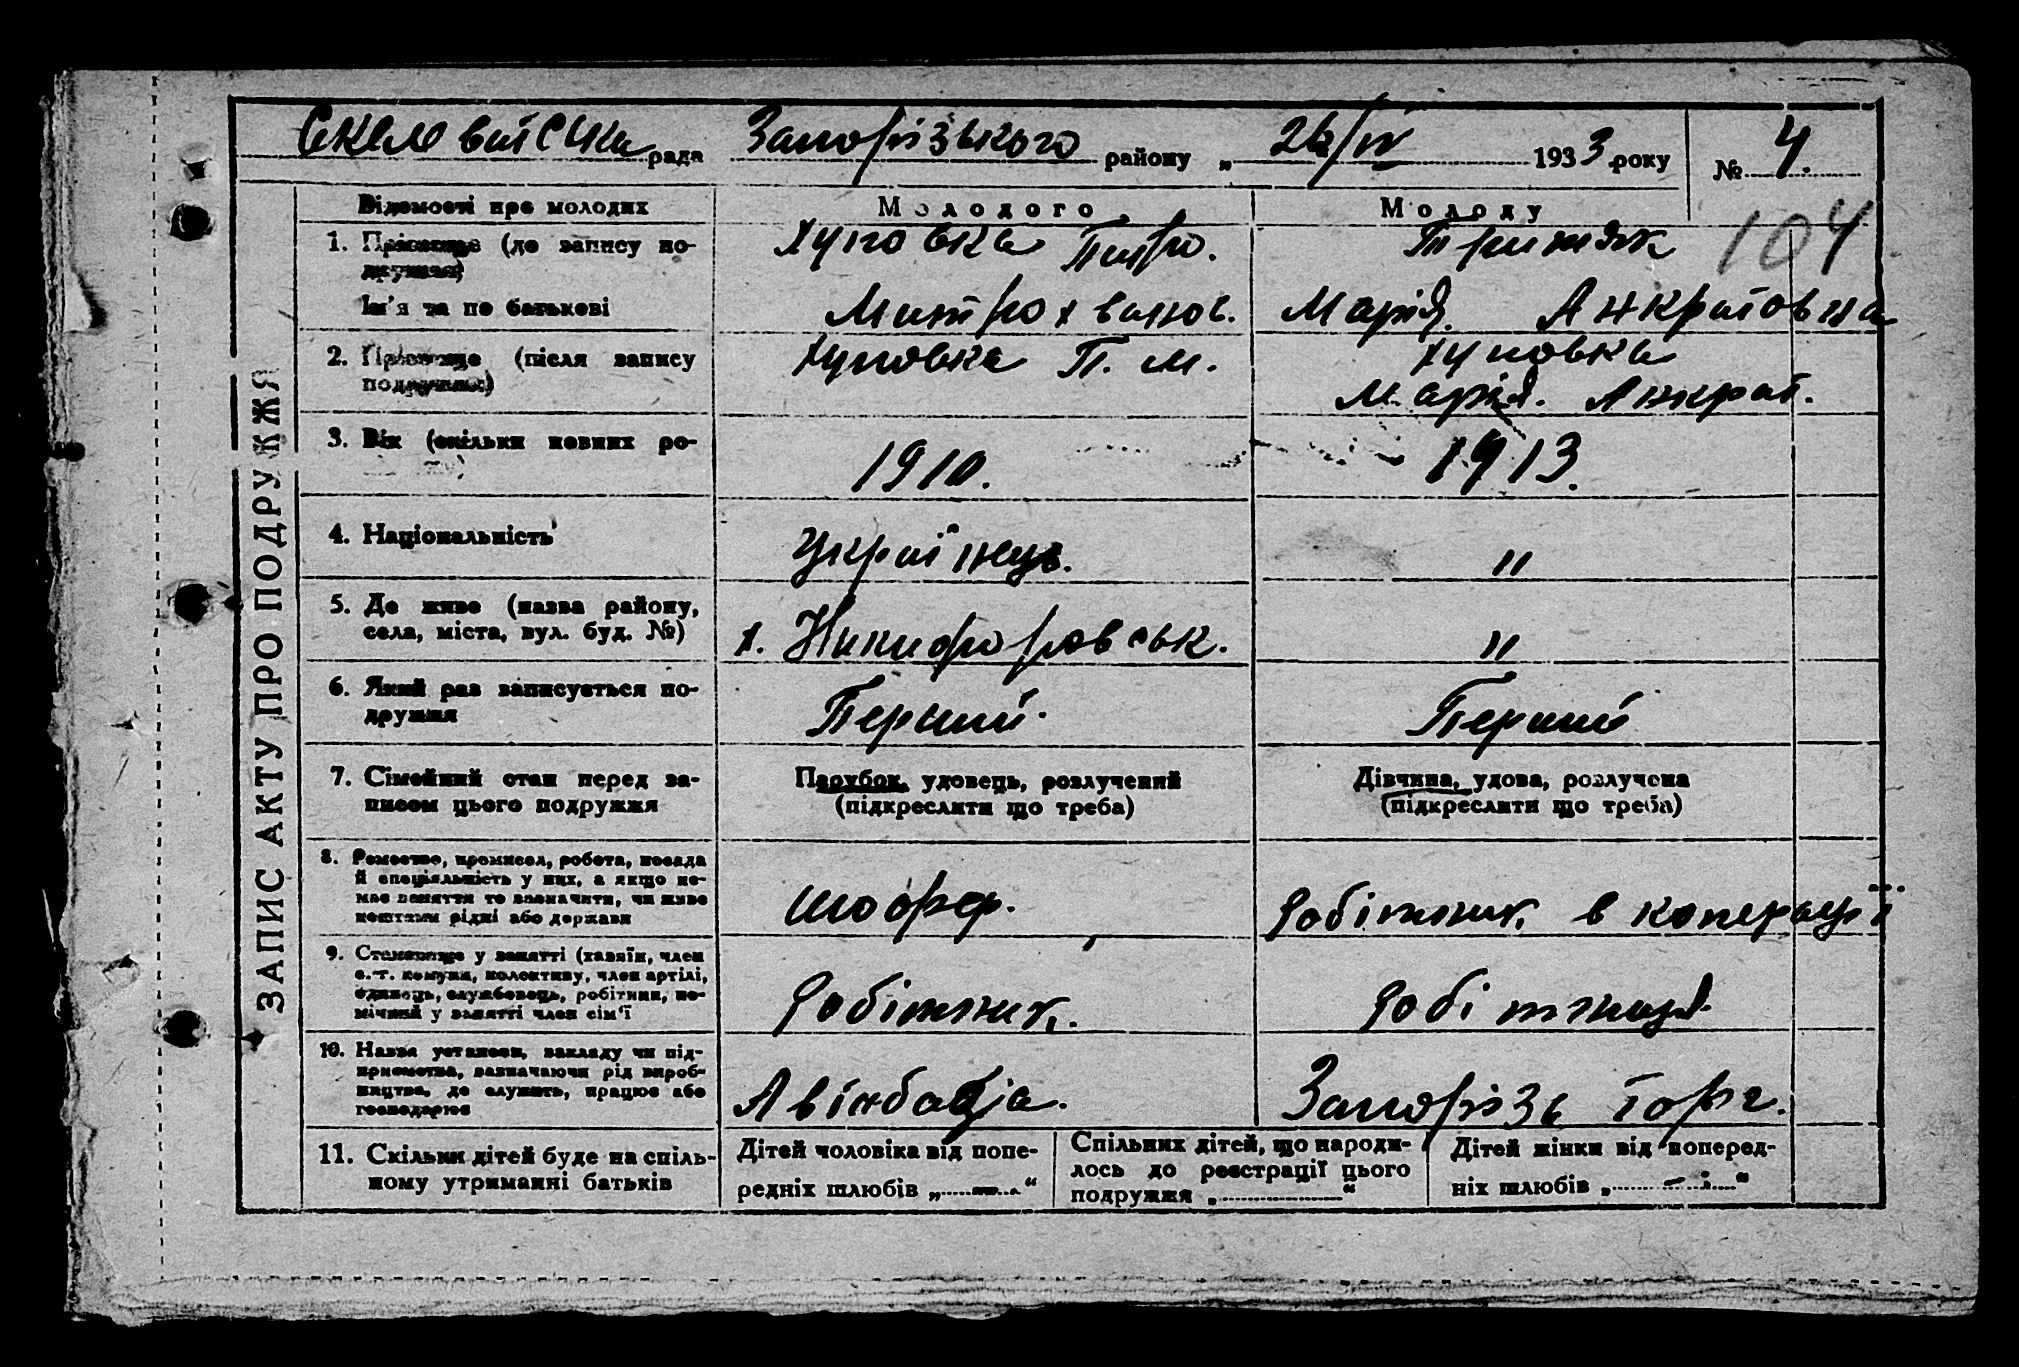 Скелеватська рада Запорізького району „ 26/IV 1933 року № 4.
104
ЗАПИС АКТУ ПРО ПОДРУЖЖЯ
Відомості про молодих Молодого Молоду
1. Прізвище (до запису по-
дружжя)
Хуповка Петро. Тритяк
Ім'я та по батькові Митрохванов. Марія. Анкратовна
2. Прізвище (після запису
подружжя)
Хуповка П. М. Хуповка
Марія. Анкрат.
3. Вік (скільки повних ро-
1910. 1913.
4. Національність Українець. "
5. Де живе (назва району,
села, міста, вул. буд. №)
х. Никифоровськ. "
6. Який раз записується по-
дружжя
Перший. Перший
7. Сімейний стан перед за-
писом цього подружжя
Парубок, удовець, розлучений
(підкреслити що треба)
Дівчина, удова, розлучена
(підкреслити що треба)
8. Ремество, промисел, робота, посада
й спеціяльність у них, а якщо не-
має заняття то зазначити, чи живе
коштами рідні або держави
шофер. Робітник в коперації
9. Становище у занятті (хазяїн, член
с.-г. комуни, колективу, член артілі,
одинець, службовець, робітник, по-
мічний у занятті член сім'ї
Робітник. Робітниця
10. Назва установи, закладу чи під-
приємства, зазначаючи рід вироб-
ництва, де служить, працює або
господарює
Запорізь торг.
11. Скільки дітей буде на спіль-
ному утриманні батьків
Дітей чоловіка від попе-
редніх шлюбів „ — “
Спільних дітей, що народи-
лось до реєстрації цього
подружжя „ “
Дітей жінки від поперед-
ніх шлюбів „ — “